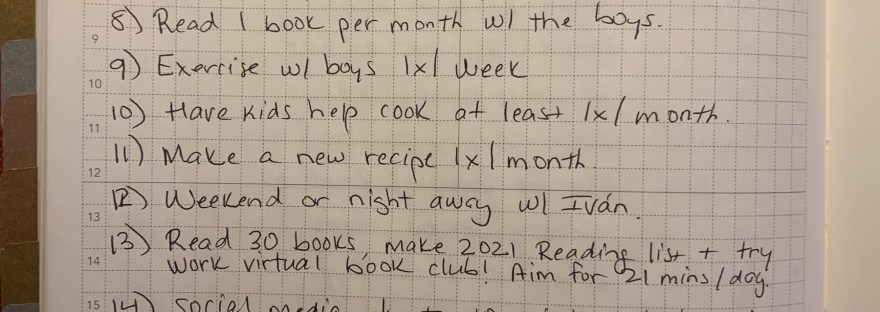 9 8) Read 1 book per month w/ the boys.
10 9) Exercise w/ boys 1x/ week
11 10) Have kids help cook at least 1x/month.
12 11) Make a new recipe 1x/month.
13 12) Weekend or night away w/ Iván.
13) Read 30 books, make 2021 Reading list + try
14 work virtual book club! Aim for 21 mins/day.
15 14) Social media